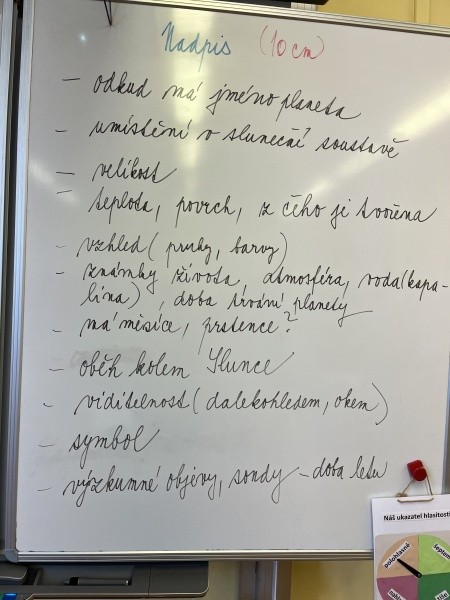 Nadpis (10 cm)
– odkud má jméno planeta
– umístění v sluneční soustavě
– velikost
– teplota, povrch, z čeho je tvořena
– vzhled (pruhy, barvy)
– známky života, atmosféra, voda (kapa-
lina), doba trvání planety
– má měsíce, prstence?
– oběh kolem Slunce
– viditelnost (dalekohledem, okem)
– symbol
– výzkumné objevy, sondy – doba letu
Náš ukazatel hlasitosti
polohlasně
šeptem